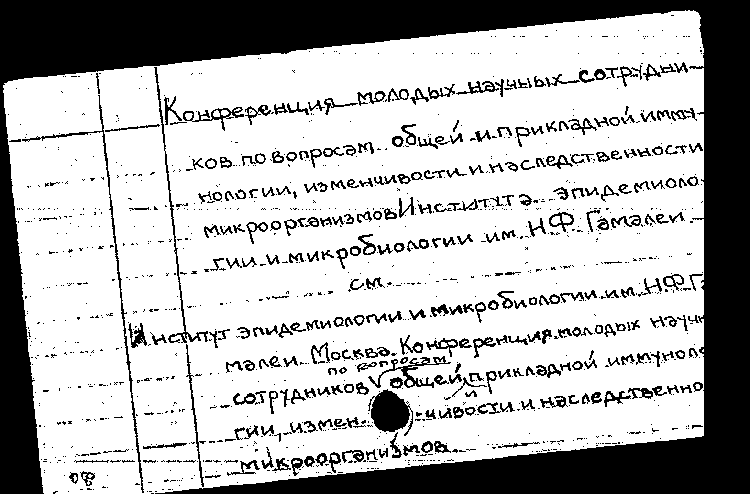 Конференция молодых научных сотрудни-
ков по вопросам общей и прикладной имму-
нологии, изменчивости и наследственности
микроорганизмов Института эпидемиоло-
гии и микробиологии им. Н.Ф. Гамалеи.
см.
Институт эпидемиологии и микробиологии им. Н.Ф. Га
малеи. Москва. Конференция молодых научн
по вопросам
сотрудников общей, прикладной иммуноло
и
гии, измен-чивости и наследственно
микроорганизмов.
80